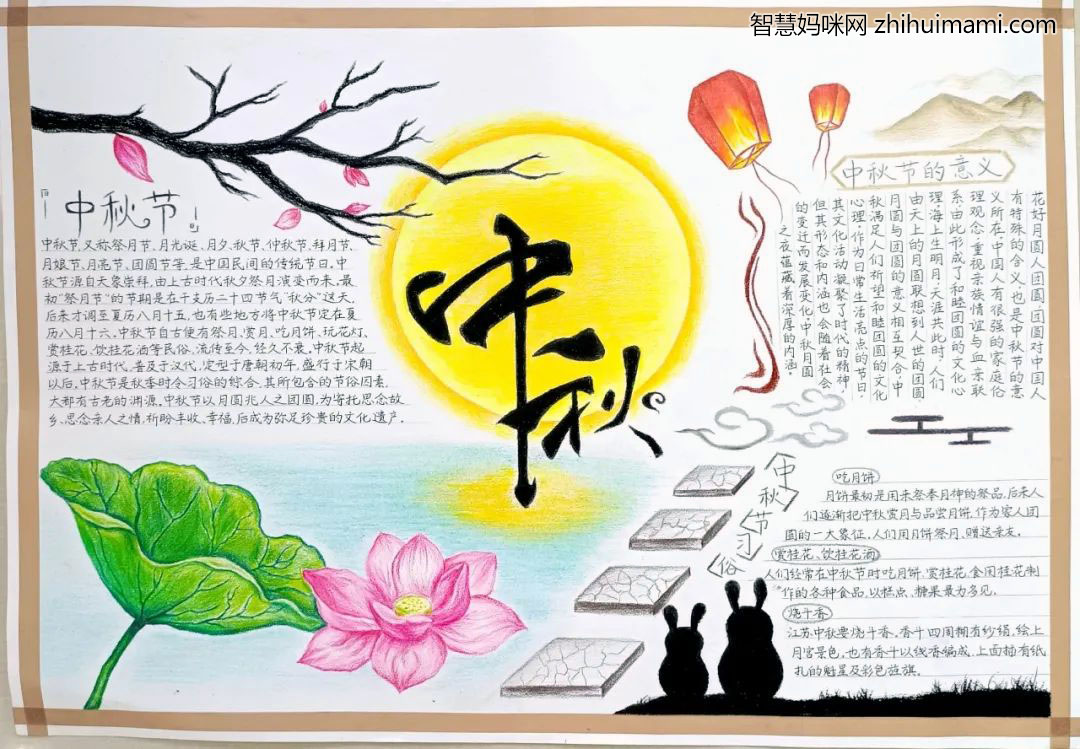 智慧妈咪网 zhihuimami.com
中秋节
中秋节,又称祭月节、月光诞、月夕、秋节、仲秋节、拜月节、
月娘节、月亮节、团圆节等,是中国民间的传统节日。中
秋节源自天象崇拜,由上古时代秋夕祭月演变而来。最
初“祭月节”的节期是在干支历二十四节气“秋分”这天,
后来才调至夏历八月十五,也有些地方将中秋节定在夏
历八月十六。中秋节自古便有祭月、赏月、吃月饼、玩花灯、
赏桂花、饮桂花酒等民俗,流传至今,经久不衰。中秋节起
源于上古时代,普及于汉代,定型于唐朝初年,盛行于宋朝
以后。中秋节是秋季时令习俗的综合,其所包含的节俗因素,
大都有古老的渊源。中秋节以月圆兆人之团圆,为寄托思念故
乡、思念亲人之情,祈盼丰收、幸福,后成为弥足珍贵的文化遗产。
中秋
中秋节的意义
花好月圆人团圆团圆对中国人
有特殊的含义,也是中秋节的意
义所在。中国人有很强的家庭伦
理观念,重视亲族情谊与血亲联
系,由此形成了和睦团圆的文化心
理。海上生明月,天涯共此时,人们
由天上的月圆联想到人世的团圆,
月圆与团圆的意义相互契合。中
秋满足人们祈望和睦团圆的文化
心理,作为日常生活亮点的节日,
其文化活动凝聚了时代的精神,
但其形态和内涵也会随着社会
的变迁而发展变化。中秋月圆
之夜蕴藏着深厚的内涵。
中秋节习俗
吃月饼
月饼最初是用来祭奉月神的祭品,后来人
们逐渐把中秋赏月与品尝月饼,作为家人团
圆的一大象征,人们用月饼祭月、赠送亲友。
赏桂花、饮桂花酒
人们经常在中秋节时吃月饼、赏桂花,食用桂花制
作的各种食品,以糕点、糖果最为多见。
烧斗香
江苏中秋要烧斗香。香斗四周糊有纱绢,绘上
月宫景色。也有香斗以线香编成,上面插有纸
扎的魁星及彩色旌旗。